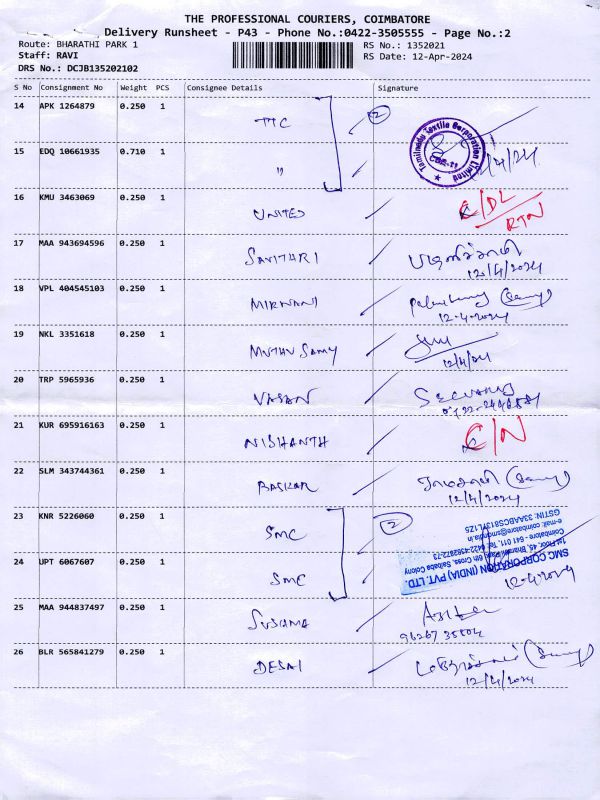 THE PROFESSIONAL COURIERS, COIMBATORE
Delivery Runsheet - P43 - Phone No.:0422-3505555 - Page No.:2
Route: BHARATHI PARK 1
RS No.: 1352021
Staff: RAVI
RS Date: 12-Apr-2024
DRS No.: DCJB135202102
S No Consignment No Weight PCS Consignee Details Signature
14 APK 1264879 0.250 1 TTC 2
Tamilnadu Textile Corporation Limited
CBE-11
15 EDQ 10661935 0.710 1 "
16 KMU 3463069 0.250 1 UNITED C/DL
RTN
17 MAA 943694596 0.250 1 SAVITHRI
12/4/2024
18 VPL 404545103 0.250 1 MIRNANI
12-4-2024
19 NKL 3351618 0.250 1 MUTHU SAMY
12/4/24
20 TRP 5965936 0.250 1 VASAN
21 KUR 695916163 0.250 1 NISHANTH C/N
22 SLM 343744361 0.250 1 BASKAR
12/4/2024
23 KNR 5226060 0.250 1 SMC 2
SMC CORPORATION (INDIA) PVT. LTD.
1st Floor, 45, Bharathi Park 6th Cross, Saibaba Colony
Coimbatore - 641 011, Tel: 0422-4362872-73
e-mail: coimbatore@smcindia.in
24 UPT 6067607 0.250 1 SMC
12-4-2024
25 MAA 944837497 0.250 1 SUSHMA
96267 35504
26 BLR 565841279 0.250 1 DESAI
12/4/2024